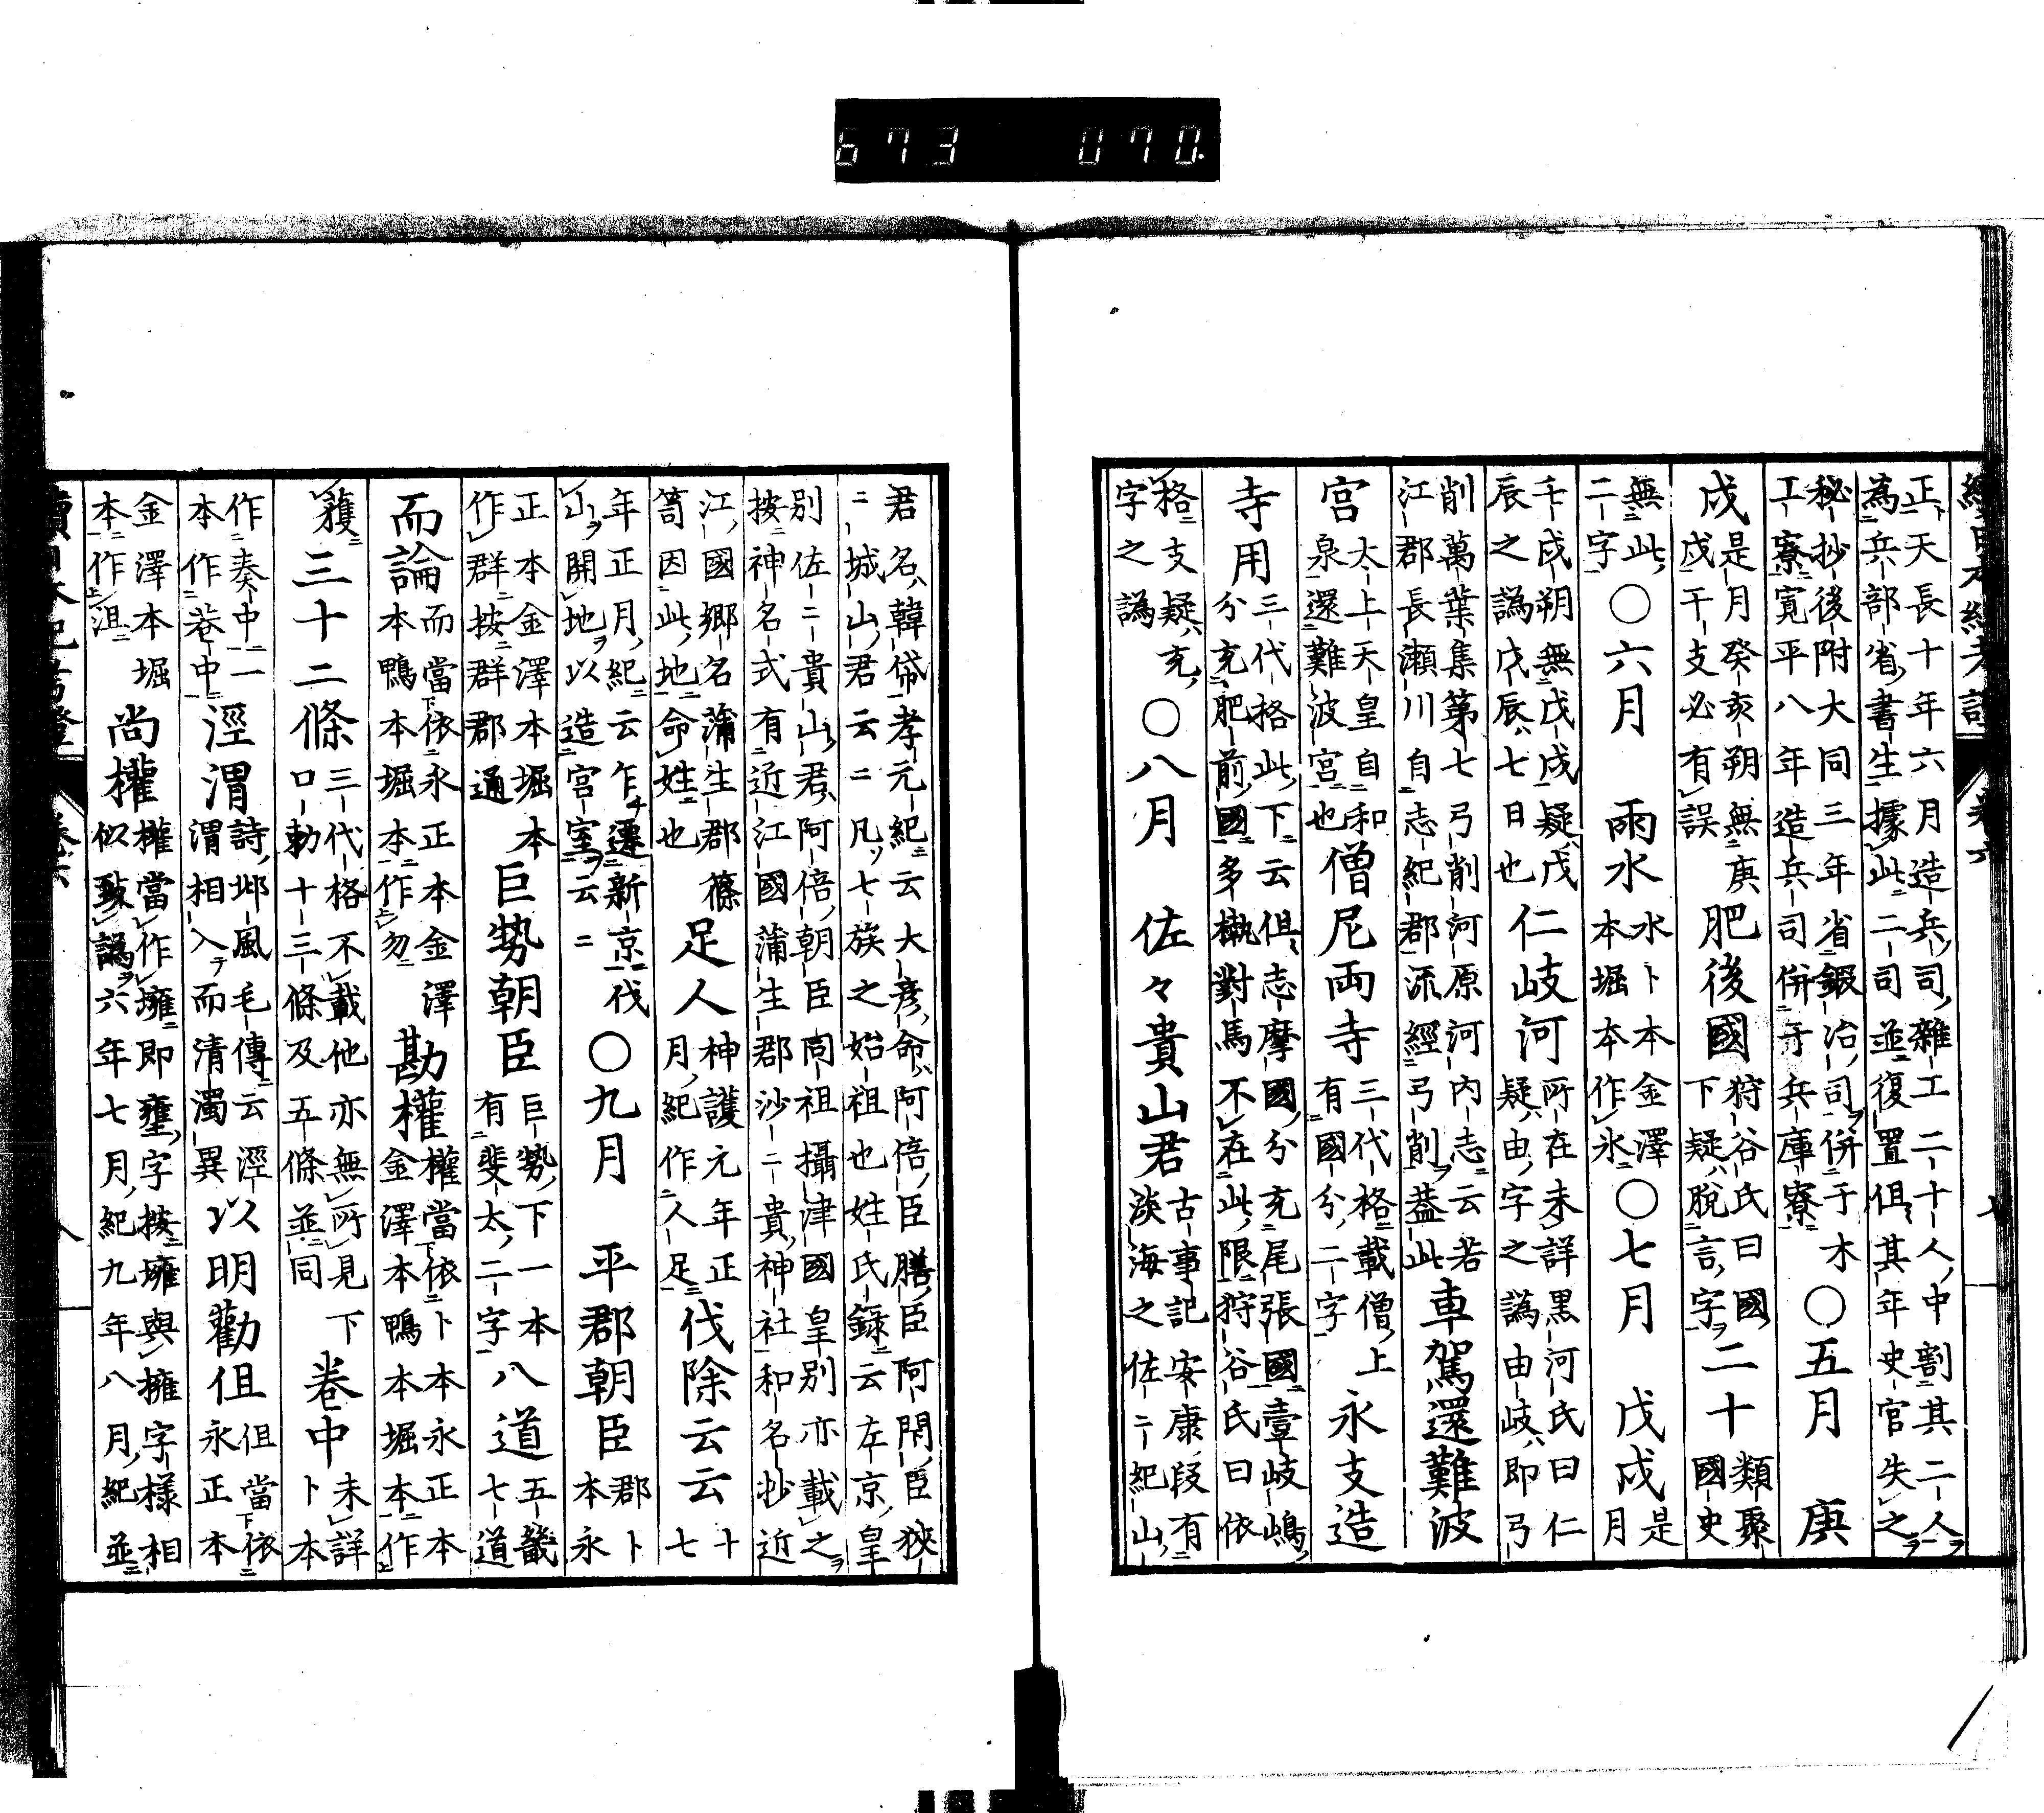 673 070
正天長十年六月造兵司雜工二十人中割其二人
為兵部省書生據此二司並復置但其年史官失之
秘抄後附大同三年省鍛冶司併于木
工寮寛平八年造兵司併于兵庫寮
○五月 庚
戌
是月癸亥朔無庚
戌干支必有誤
肥後國
狩谷氏曰國
下疑脫言字
二十
類聚
國史
無此
二字
○六月 雨水
水卜本金澤
本堀本作氷
○七月 戊戌
是
月
壬戌朔無戊戌疑戊
辰之譌戊辰七日也
仁岐河
所在未詳黑河氏曰仁
疑由字之譌由岐即弓
削萬葉集第七弓削河原河内志云若
江郡長瀬川自志紀郡流經弓削蓋此
車駕還難波
宮
太上天皇自和
泉還難波宮也
僧尼両寺
三代格載僧上
有國分二字
永支造
寺用
三代格此下云但志摩國分充尾張國壹岐嶋
分充肥前國多褹對馬不在此限狩谷氏曰依
格支疑充
字之譌
○八月 佐々貴山君
古事記安康段有
淡海之佐二紀山
君名韓帒孝元紀云大彦命阿倍臣膳臣阿閇臣狹
二城山君云二凡七族之始祖也姓氏録云左京皇
別佐二貴山君阿倍朝臣同祖攝津國皇別亦載之
按神名式有近江國蒲生郡沙二貴神社和名抄近
江國郷名蒲生郡篠
笥因此地命姓也
足人
神護元年正
月紀作人足
伐除云云
十
七
年正月紀云乍遷新京伐
山開地以造宮室云二
○九月 平郡朝臣
郡卜
本永
正本金澤本堀本
作群按群郡通
巨勢朝臣
巨勢下一本
有斐太二字
八道
五畿
七道
而論
而當依永正本金澤
本鴨本堀本作勿
勘權
權當依卜本永正本
金澤本鴨本堀本作
獲
三十二條
三代格不載他亦無所見
口勅十三條及五條並同
下卷中
未詳
卜本
作奏中一
本作巻中
涇渭
詩邶風毛傳云涇
渭相入而清濁異
以明勸但
但當依
永正本
金澤本堀
本作沮
尚權
權當作擁即壅字按擁與權字様相
似致譌六年七月紀九年八月紀並